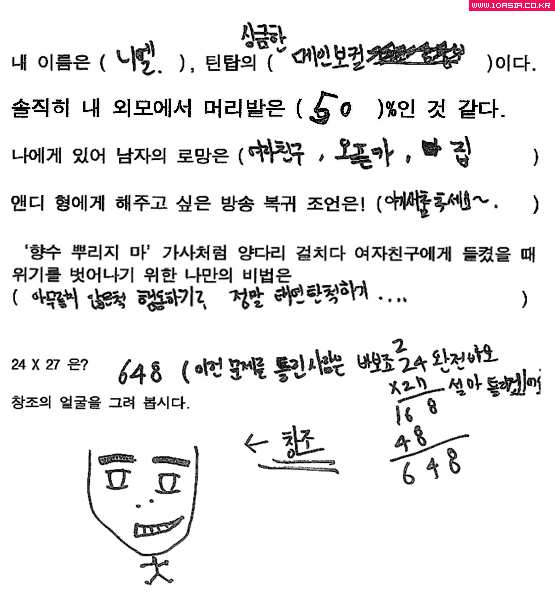 WWW.10ASIA.CO.KR
상큼한
내 이름은 ( 니엘. ), 틴탑의 ( 메인보컬 )이다.
솔직히 내 외모에서 머리발은 ( 50 )%인 것 같다.
나에게 있어 남자의 로망은 (여자친구, 오픈카, 집 )
앤디 형에게 해주고 싶은 방송 복귀 조언은! ( 주세요~. )
‘향수 뿌리지 마’ 가사처럼 양다리 걸치다 여자친구에게 들켰을 때
위기를 벗어나기 위한 나만의 비법은
( 아무렇지 않은척 행동하기, 정말 태연한척하기 .... )
24 X 27 은? 648 (이런 문제를 틀린사람은 바보죠 완전바보
설마 틀리겠어요
2
24
X27
168
48
648
창조의 얼굴을 그려 봅시다.
← 창조